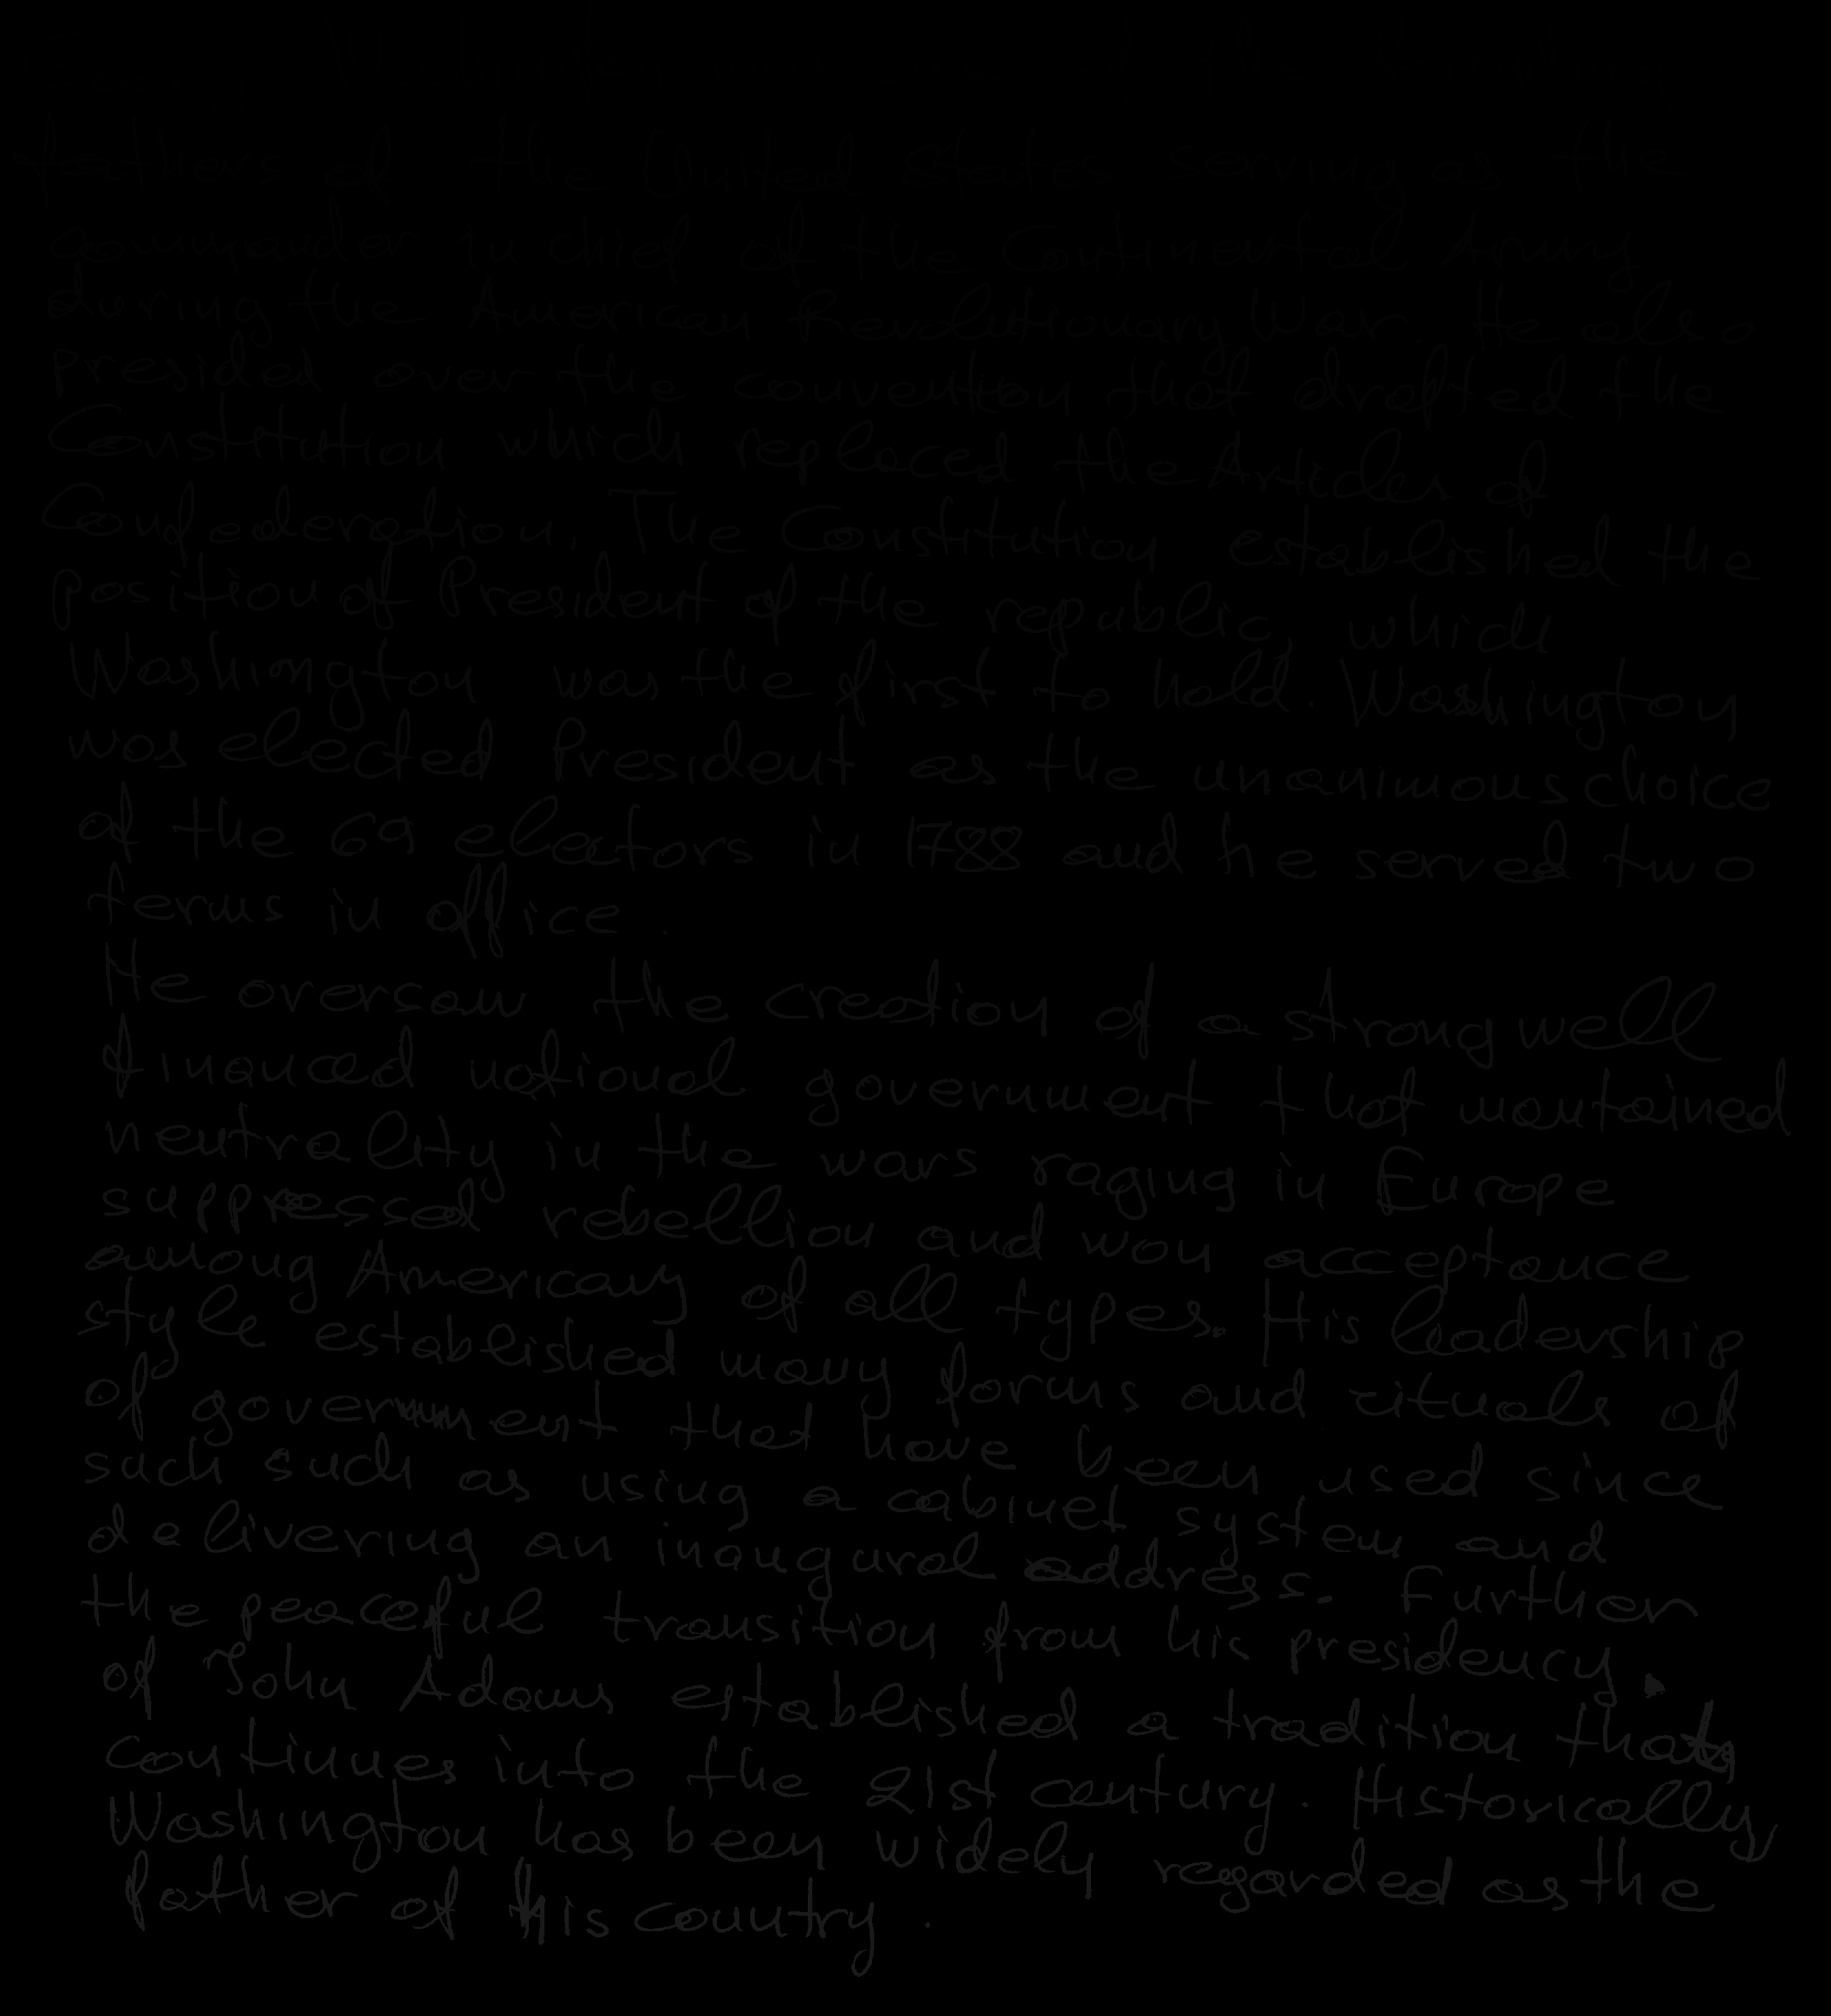 fathers of the United States serving as the
commander in chief of the Continental Army
during the American Revolutionary War. He also
presided over the convention that drafted the
Constitution which replaced the Articles of
Confederation. The Constitution established the
position of President of the republic, which
Washington was the first to hold. Washington
was elected President as the unanimous choice
of the 69 electors in 1788 and he served two
terms in office.
He oversaw the creation of a strong well
financed national government that maintained
neutrality in the wars raging in Europe
suppressed rebellion and won acceptance
among Americans of all types. His leadership
style established many forms and rituals of
of government that have been used since
such such as using a cabinet system and
delivering an inaugural address. Further
the peaceful transition from his presidency
of John Adams established a tradition that
continues into the 21st century. Historically
Washington has been widely regarded as the
father of his country.